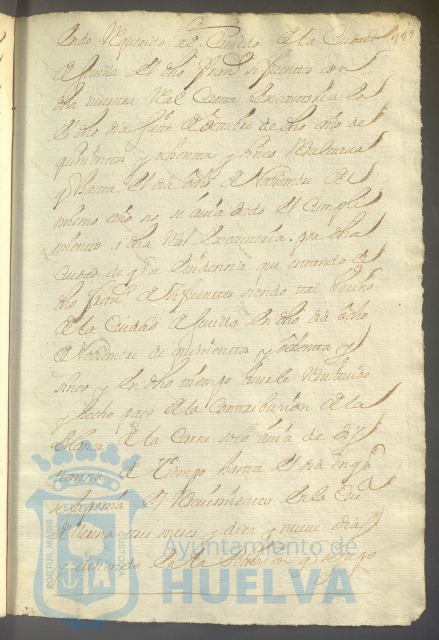 149
endo Requerido al Cavildo de la Ciudad
de Sevilla el dho Fran.co Sifuentes con
dha nuestra Real Carta Executoria en
el dho dia siete de Octubre de dho año de
quinientos y ochenta y cinco Resultava
q hasta el dia ocho de Noviembre del
mismo año no se avia dado el Cumpli
miento a dha Real Executoria. por dha
Ciudad de q.e se evidencia que estando el
dho Fran.co de Sifuentes siendo tal Vecino
de la Ciudad de Sevilla en dho dia ocho
de Noviembre de quinientos y ochenta y
sinco y en dho tiempo haverle Resultado
y hecho pago de la Contribucion de la
Blanca de la Carne solo avia de dis
tancia de Tiempo hasta el dia en q.e
el Requirimiento de la
meses y diez y nueve dias
y
PORTUS MARIS
CUSTODIA
Ayuntamiento de
HUELVA